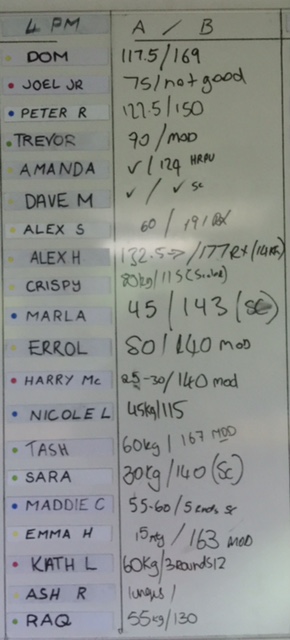 4 PM A / B
DOM 117.5/169
JOEL JR 75/not good
PETER R 122.5/150
TREVOR 70/MOD
AMANDA ✓/124 HRPU
DAVE M ✓/✓ sc
ALEX S 60/191 RX
ALEX H 132.5→/177 RX
CRISPY 80kg/115 (Scaled)
MARLA 45/143 (SC)
ERROL 80/140 MOD
HARRY Mc 25-30/140 mod
NICOLE L 45kg/115
TASH 60kg/167 MOD
SARA 30kg/140 (Sc)
MADDIE C 55-60/5 rnds sc
EMMA H /163 MOD
KATH L 60Kg/3rounds12
ASH R lunges/
RAQ 55kg/130